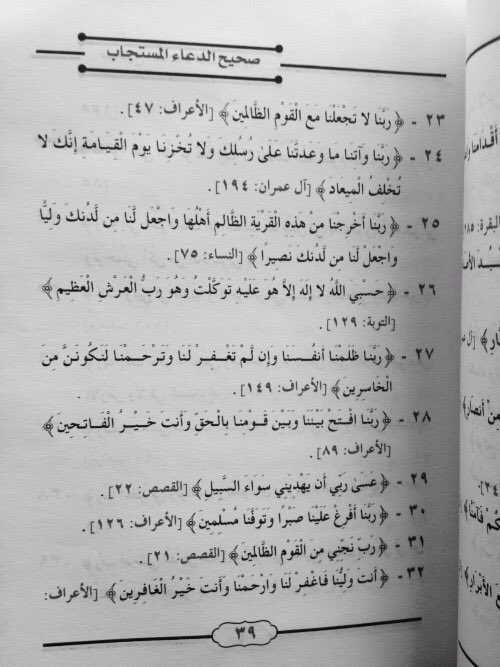 صحيح الدعاء المستجاب
٢٣ - ﴿ رَبَّنَا لا تَجْعَلْنَا مَعَ الْقَوْمِ الظَّالِمِينَ ﴾ [الأعراف: ٤٧] .
٢٤ - ﴿ رَبَّنَا وَآتِنَا مَا وَعَدتَّنَا عَلَىٰ رُسُلِكَ وَلا تُخْزِنَا يَوْمَ الْقِيَامَةِ إِنَّكَ لا
تُخْلِفُ الْمِيعَادَ ﴾ [آل عمران: ١٩٤] .
٢٥ - ﴿ رَبَّنَا أَخْرِجْنَا مِنْ هَذِهِ الْقَرْيَةِ الظَّالِمِ أَهْلُهَا وَاجْعَل لَّنَا مِن لَّدُنكَ وَلِيًّا
وَاجْعَل لَّنَا مِن لَّدُنكَ نَصِيرًا ﴾ [النساء: ٧٥] .
٢٦ - ﴿ حَسْبِيَ اللَّهُ لا إِلَهَ إِلاَّ هُوَ عَلَيْهِ تَوَكَّلْتُ وَهُوَ رَبُّ الْعَرْشِ الْعَظِيمِ ﴾
[التوبة: ١٢٩] .
٢٧ - ﴿ رَبَّنَا ظَلَمْنَا أَنفُسَنَا وَإِن لَّمْ تَغْفِرْ لَنَا وَتَرْحَمْنَا لَنَكُونَنَّ مِنَ
الْخَاسِرِينَ ﴾ [الأعراف: ١٤٩] .
٢٨ - ﴿ رَبَّنَا افْتَحْ بَيْنَنَا وَبَيْنَ قَوْمِنَا بِالْحَقِّ وَأَنتَ خَيْرُ الْفَاتِحِينَ ﴾
[الأعراف: ٨٩] .
٢٩ - ﴿ عَسَىٰ رَبِّي أَن يَهْدِيَنِي سَوَاءَ السَّبِيلِ ﴾ [القصص: ٢٢] .
٣٠ - ﴿ رَبَّنَا أَفْرِغْ عَلَيْنَا صَبْرًا وَتَوَفَّنَا مُسْلِمِينَ ﴾ [الأعراف: ١٢٦] .
٣١ - ﴿ رَبِّ نَجِّنِي مِنَ الْقَوْمِ الظَّالِمِينَ ﴾ [القصص: ٢١] .
٣٢ - ﴿ أَنتَ وَلِيُّنَا فَاغْفِرْ لَنَا وَارْحَمْنَا وَأَنتَ خَيْرُ الْغَافِرِينَ ﴾ [الأعراف:
٣٩